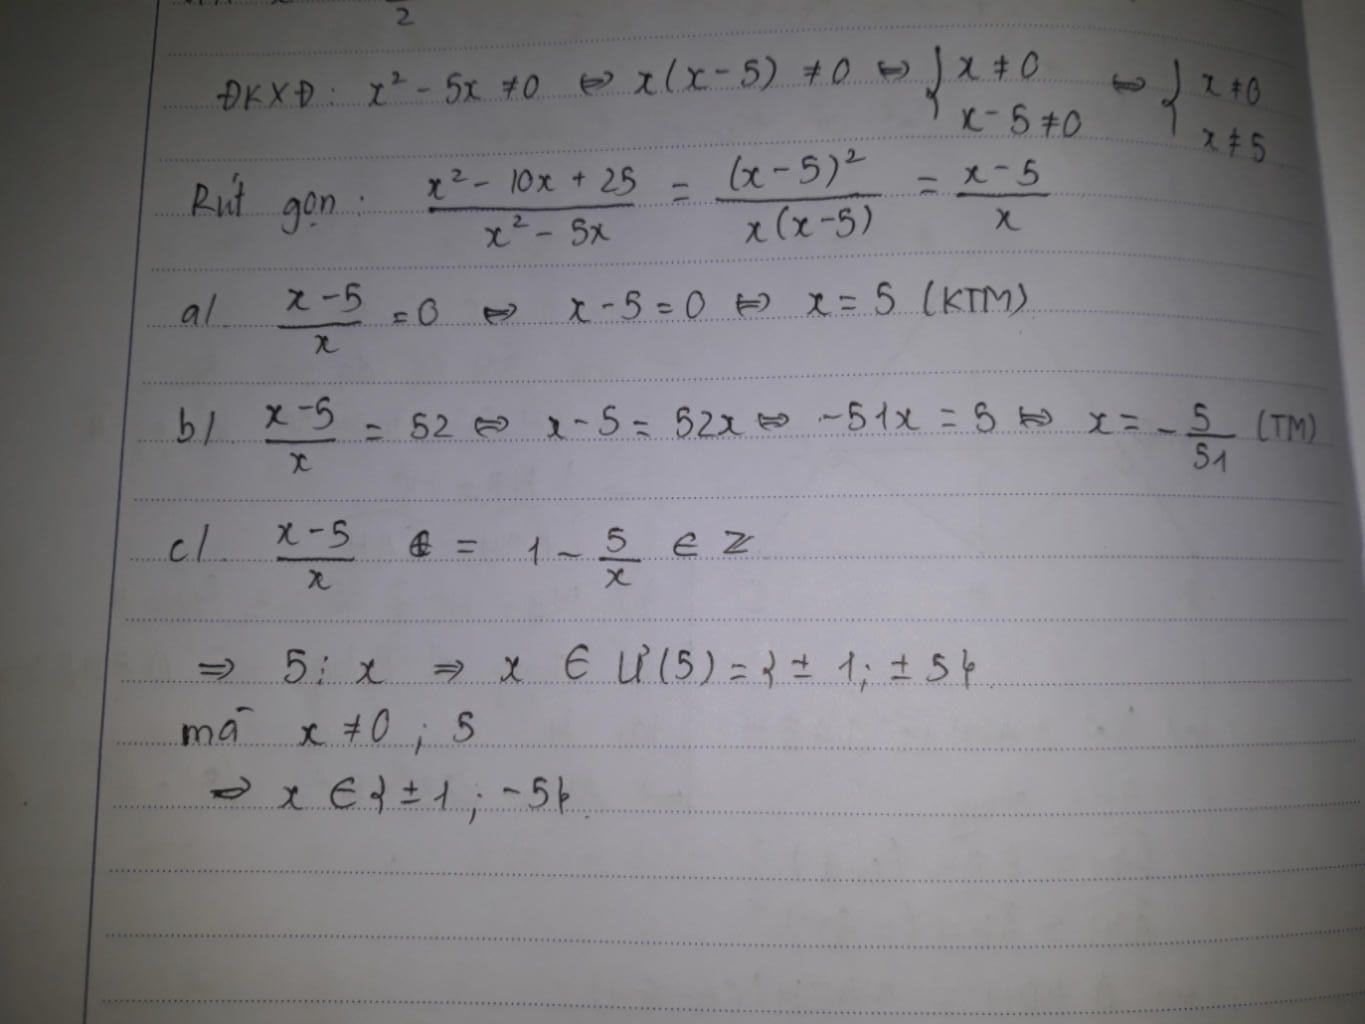 2
ĐKXĐ: x² - 5x ≠ 0 ⇔ x(x - 5) ≠ 0 ⇔ { x ≠ 0 ; x - 5 ≠ 0 ⇔ { x ≠ 0 ; x ≠ 5
Rút gọn: (x² - 10x + 25)/(x² - 5x) = (x - 5)²/(x(x - 5)) = (x - 5)/x
a/ (x - 5)/x = 0 ⇔ x - 5 = 0 ⇔ x = 5 (KTM)
b/ (x - 5)/x = 52 ⇔ x - 5 = 52x ⇔ -51x = 5 ⇔ x = - 5/51 (TM)
c/ (x - 5)/x = 1 - 5/x ∈ Z
⇒ 5 ⋮ x ⇒ x ∈ Ư(5) = {± 1; ± 5}
mà x ≠ 0 ; 5
⇒ x ∈ {± 1 ; -5}